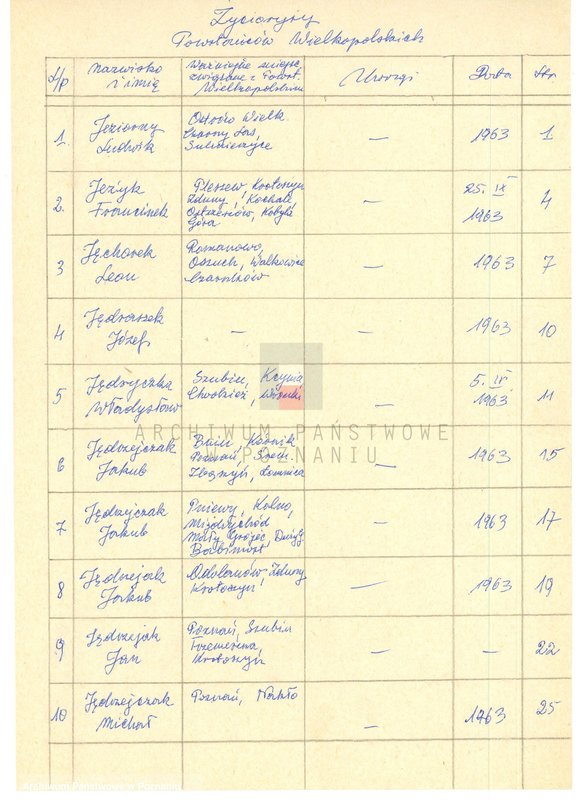 Życiorysy
Powstańców Wielkopolskich
L/p
Nazwisko
i imię
Ważniejsze miejsc.
związane z Powst.
Wielkopolskim
Urodzgi
Data
Str.
1.
Jeziorny
Ludwik
Ostrów Wielk.
Czarny Las,
Sulmierzyce
—
1963
1
2.
Jeżyk
Franciszek
Pleszew, Krotoszyn
Zduny, Kochale
Ostrzeszów, Kobyla
Góra
—
25. IX
1963
4
3
Jęchorek
Leon
Romanowo,
Osuch, Walkowice
Czarnków
—
1963
7
4
Jędraszek
Józef
—
—
1963
10
5
Jędryczka
Władysław
Szubin, Kcynia
Chodzież, Wronki
—
5. IV
1963
11
6
Jędrzejczak
Jakub
Bnin, Kórnik
Poznań, Śrem
Zbąszyń, Łomnica
—
1963
15
ARCHIWUM PAŃSTWOWE
W POZNANIU
7
Jędrzejczak
Jakub
Pniewy, Kolno,
Międzychód
Mały Grójec, Duży
Babimost
—
1963
17
8
Jędrzejak
Jakub
Odolanów, Zduny
Krotoszyn
—
1963
19
9
Jędrzejak
Jan
Poznań, Szubin
Tremessna,
Krotoszyn
—
—
22
10
Jędrzejczak
Michał
Poznań, Nakło
—
1963
25
Archiwum Państwowe w Poznaniu